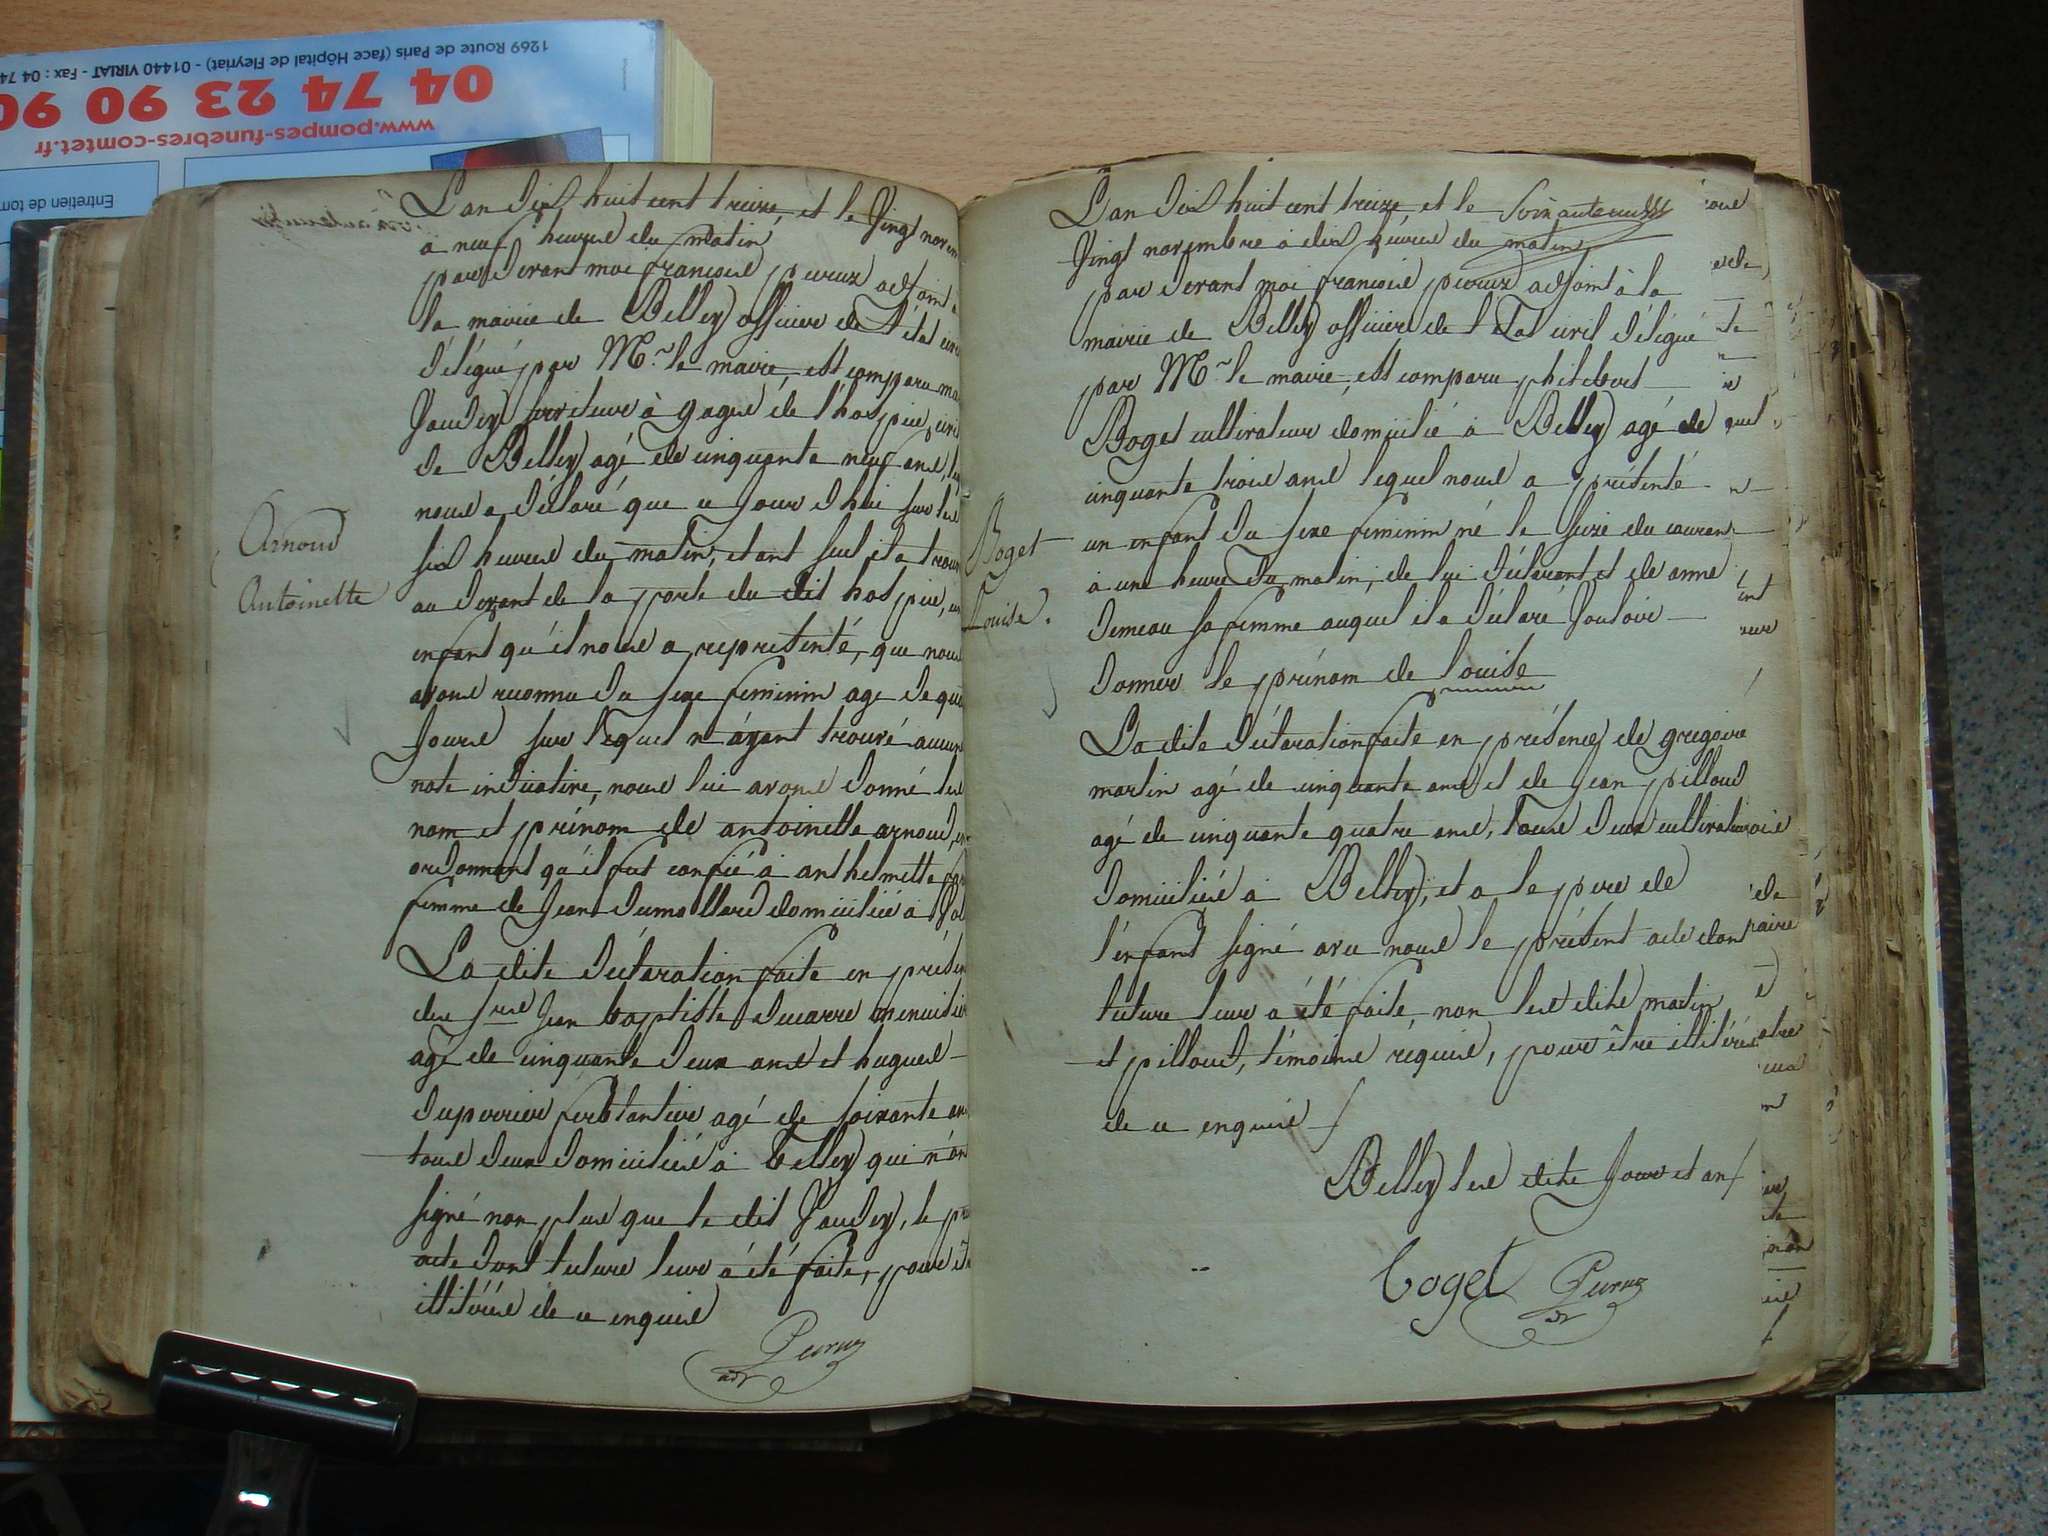 1269 Route de Paris (face Hôpital de Fleyriat) - 01440 VIRIAT - Fax : 04 74
04 74 23 90 90
www.pompes-funebres-comtet.fr
Entretien de tom
L'an dix huit cent treize, et le vingt novem
a neuf heures du matin
par devant moi françois peuruz adjoint a
la mairie de Belley officier de l'état civi
délégué par Mr. le maire, est comparu
Vaudey serviteur à gages de l'hospice civil
de Belley agé de cinquante neuf ans, le
nous a déclaré que ce jour d'hui sur les
six heures du matin, etant seul il a trouv
au devant de la porte du dit hospice, un
enfant qu'il nous a représenté, que nous
avons reconnu du sexe feminin age de qua
jours sur lequel n'ayant trouvé aucune
note indicative, nous lui avons donné les
nom et prénom de antoinette arnoud, en
ordonnant qu'il fut confié à anthelmette
femme de Jean dumollard domicilié à
La dite déclaration faite en présen
des srs Jean baptiste ducarre menuisie
agé de cinquante deux ans et hugues
duperrier agé de soixante an
tous deux domiciliés à belley qui n'on
signé non plus que le dit Vaudey, le pré
acte dont lecture leur à été faite, pour êtr
illitérés de ce enquis
Arnoud
Antoinette
L'an dix huit cent treize, et le
Vingt novembre à dix heures du matin
par devant moi françois peuruz adjoint à la
mairie de Belley officier de l'Etat civil délégué
par Mr. le maire, est comparu philibert
Boget cultivateur domicilié à Belley agé de
cinquante trois ans lequel nous a présenté
un enfant du sexe feminin né le seize du courant
à une heure du matin, de lui déclarant et de anne
demeau sa femme auquel il a déclaré Vouloir
donner le prénom de louise
La dite déclaration faite en présence de gregoire
martin agé de cinquante ans et de jean pilloud
agé de cinquante quatre ans, Tous deux cultivateurs
domiciliés à Belley, et a le pere de
l'enfant signé avec nous le présent acte dont
lecture leur a été faite, non les dits martin
et pilloud, témoins réquis, pour être illitérés
de ce enquis
Belley les dits Jour et an
boget
Boget
Louise.